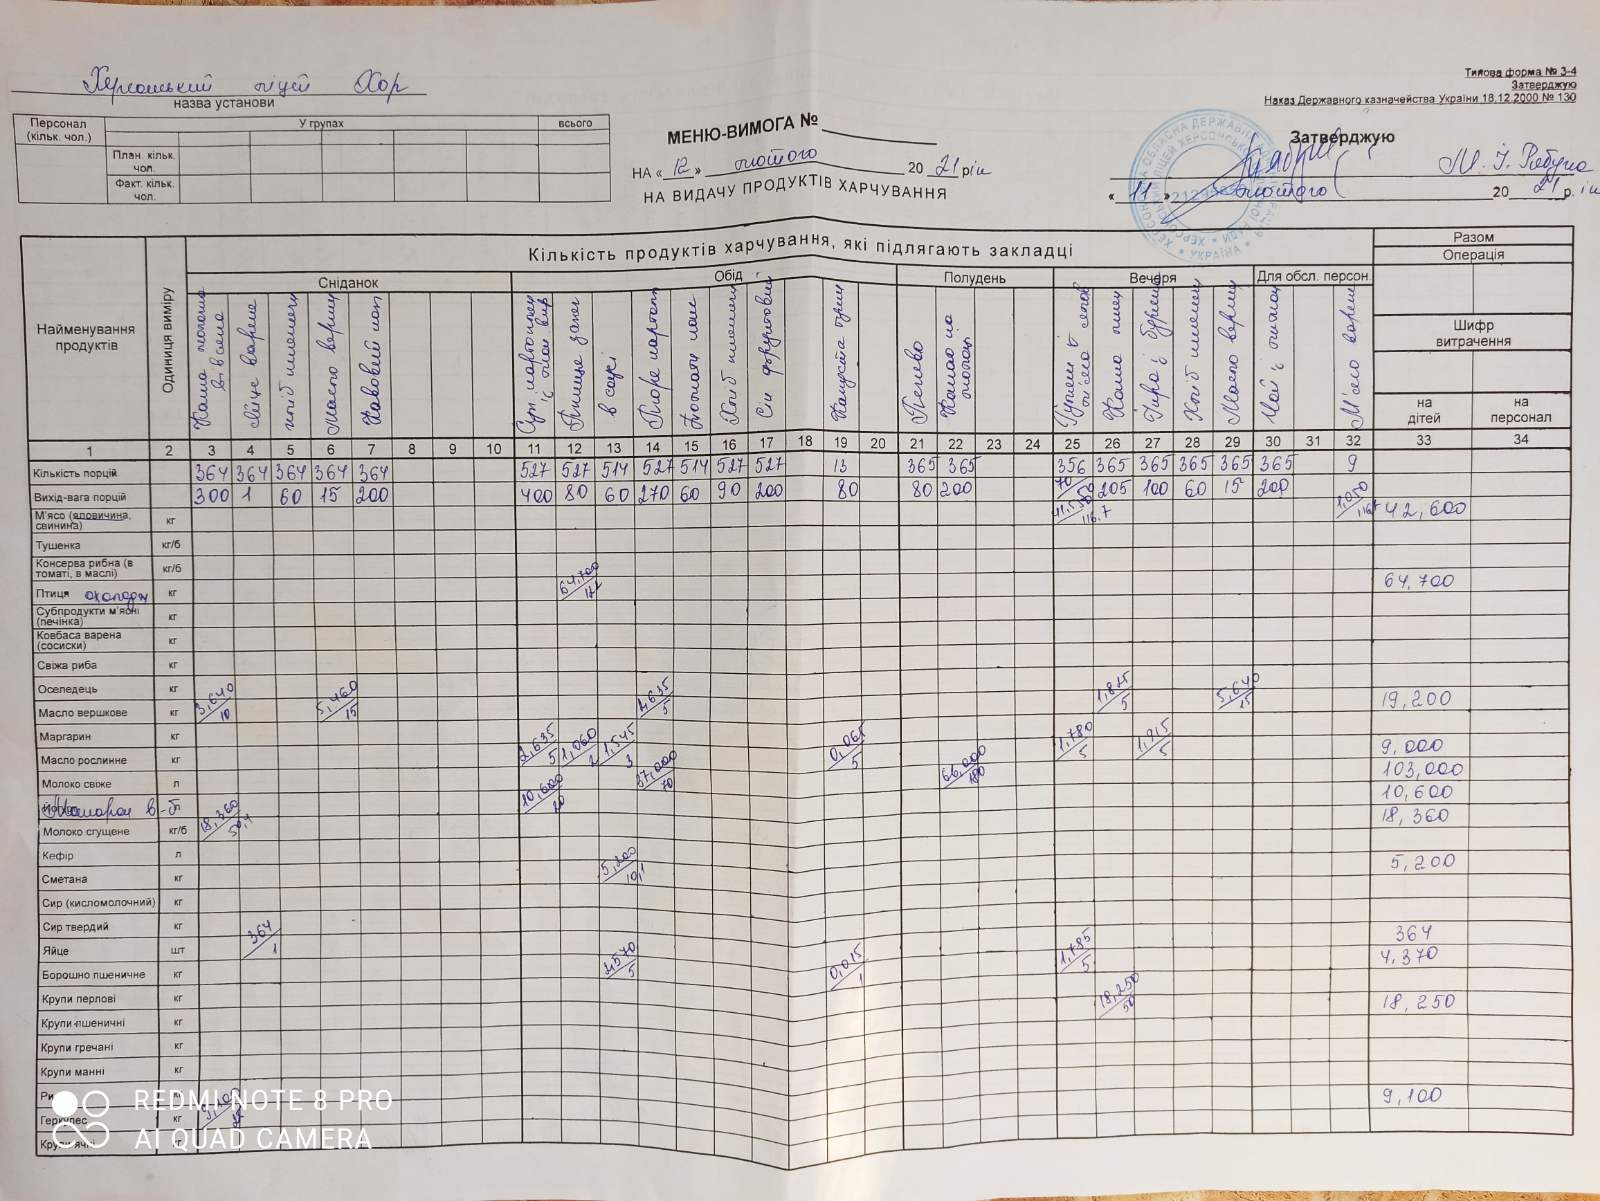 Херсонський ліцей ХОР
назва установи
Типова форма № 3-4
Затверджую
Наказ Державного казначейства України 18.12.2000 № 130
Персонал (кільк. чол.) У групах всього
План. кільк. чол.
Факт. кільк. чол.
МЕНЮ-ВИМОГА №
НА « 12 » лютого 20 21 рік
НА ВИДАЧУ ПРОДУКТІВ ХАРЧУВАННЯ
Затверджую
« 11 » лютого 20 21 р.
Найменування продуктів
Одиниця виміру
Кількість продуктів харчування, які підлягають закладці
Разом
Операція
Сніданок Обід Полудень Вечеря Для обсл. персон.
Шифр витрачення
на дітей на персонал
Яйце варене
Хліб пшеничн
Масло верш
Какао на молоці
Печиво
М'ясо варене
1 2 3 4 5 6 7 8 9 10 11 12 13 14 15 16 17 18 19 20 21 22 23 24 25 26 27 28 29 30 31 32 33 34
Кількість порцій 364 364 364 364 364 527 527 514 527 514 527 527 13 365 365 356 365 365 365 365 365 9
Вихід-вага порцій 300 1 60 15 200 400 80 60 270 60 90 200 80 80 200 70/50 205 100 60 15 200
М'ясо (яловичина, свинина) кг 116.7 42,600
Тушенка кг/б
Консерва рибна (в томаті, в маслі) кг/б
Птиця охолодж кг 64,700 64,700
Субпродукти м'ясні (печінка) кг
Ковбаса варена (сосиски) кг
Свіжа риба кг
Оселедець кг
Масло вершкове кг 3,640/10 5,460/15 2,635/5 1,825/5 5,640/15 19,200
Маргарин кг
Масло рослинне кг 2,635/5 1,060/2 1,545/3 0,065/5 1,780/5 1,915/5 9,000
Молоко свіже л 37,000/70 66,000/180 103,000
10,600/20 10,600
Молоко сгущене кг/б 18,360/50,4 18,360
Кефір л
Сметана кг 5,200/10,1 5,200
Сир (кисломолочний) кг
Сир твердий кг
Яйце шт 364/1 364
Борошно пшеничне кг 2,570/5 0,015/1 1,785/5 4,370
Крупи перлові кг
18,250/50 18,250
Крупи пшеничні кг
Крупи гречані кг
Крупи манні кг
Геркулес кг 9,100
REDMI NOTE 8 PRO
AI QUAD CAMERA